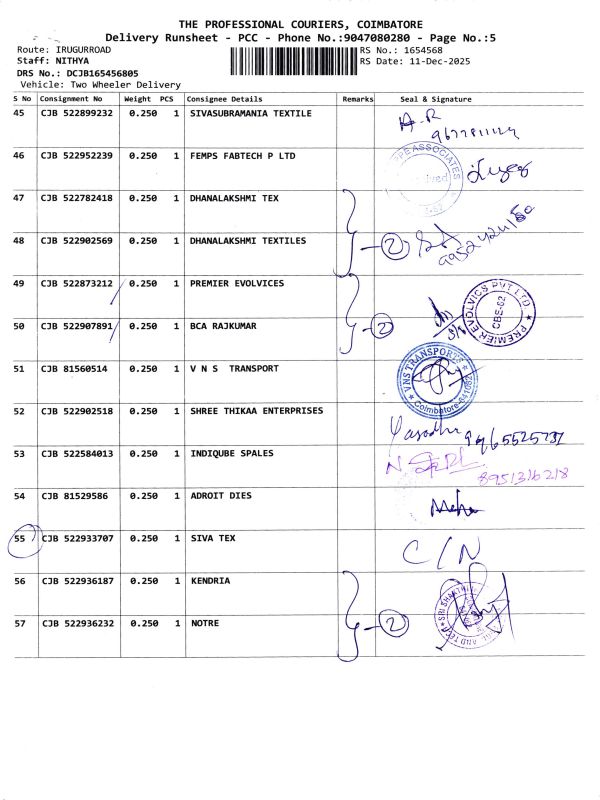 THE PROFESSIONAL COURIERS, COIMBATORE
Delivery Runsheet - PCC - Phone No.:9047080280 - Page No.:5
Route: IRUGURROAD RS No.: 1654568
Staff: NITHYA RS Date: 11-Dec-2025
DRS No.: DCJB165456805
Vehicle: Two Wheeler Delivery
S No Consignment No Weight PCS Consignee Details Remarks Seal & Signature
45 CJB 522899232 0.250 1 SIVASUBRAMANIA TEXTILE A.R
46 CJB 522952239 0.250 1 FEMPS FABTECH P LTD ASSOCIATES
47 CJB 522782418 0.250 1 DHANALAKSHMI TEX
48 CJB 522902569 0.250 1 DHANALAKSHMI TEXTILES 2
49 CJB 522873212 0.250 1 PREMIER EVOLVICES PREMIER EVOLVICS PVT LTD CBE-62
50 CJB 522907891 0.250 1 BCA RAJKUMAR 2
51 CJB 81560514 0.250 1 V N S TRANSPORT VNS TRANSPORTS Coimbatore-641062
52 CJB 522902518 0.250 1 SHREE THIKAA ENTERPRISES Yasodha
53 CJB 522584013 0.250 1 INDIQUBE SPALES 8951316218
54 CJB 81529586 0.250 1 ADROIT DIES
55 CJB 522933707 0.250 1 SIVA TEX C/N
56 CJB 522936187 0.250 1 KENDRIA SRI SHAKTHI
57 CJB 522936232 0.250 1 NOTRE 2